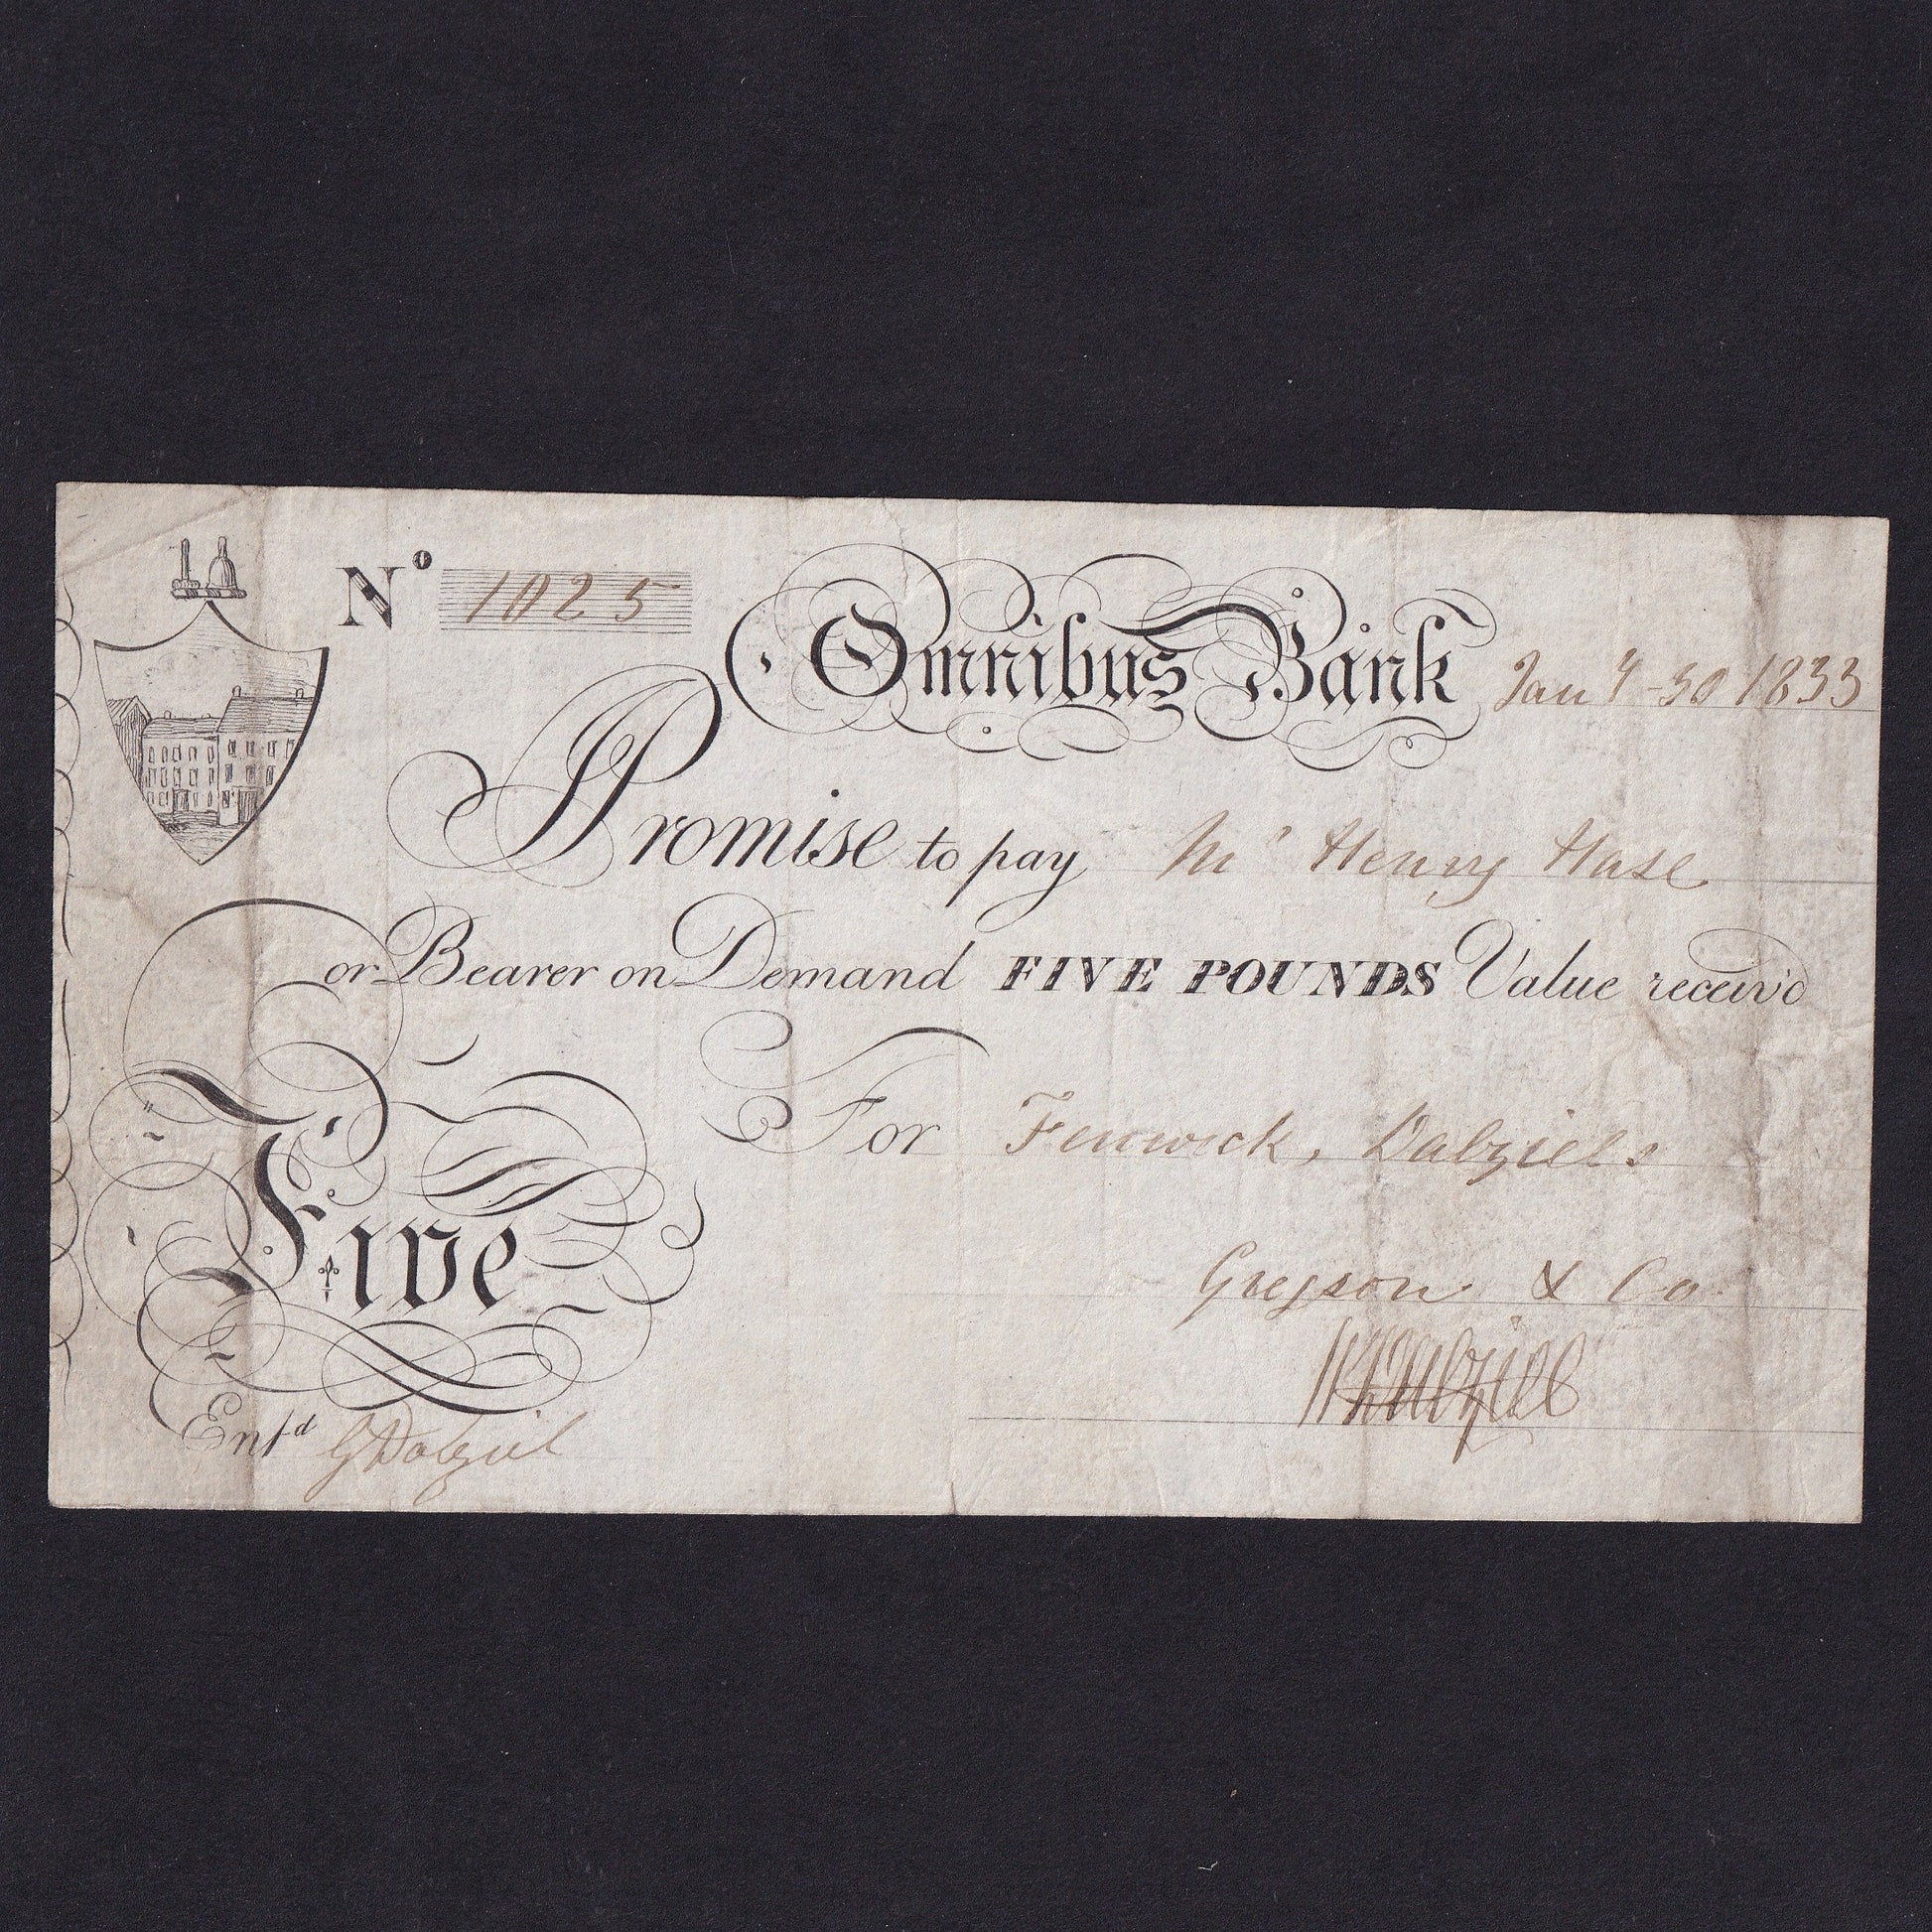 Nº 1025
Omnibus Bank
Jan 4 - 30 1833
Promise to pay Mr Henry Hase
or Bearer on Demand FIVE POUNDS Value receiv'd
For Fenwick, Dalziels
Gregson & Co
Five
Entd G Dalziel